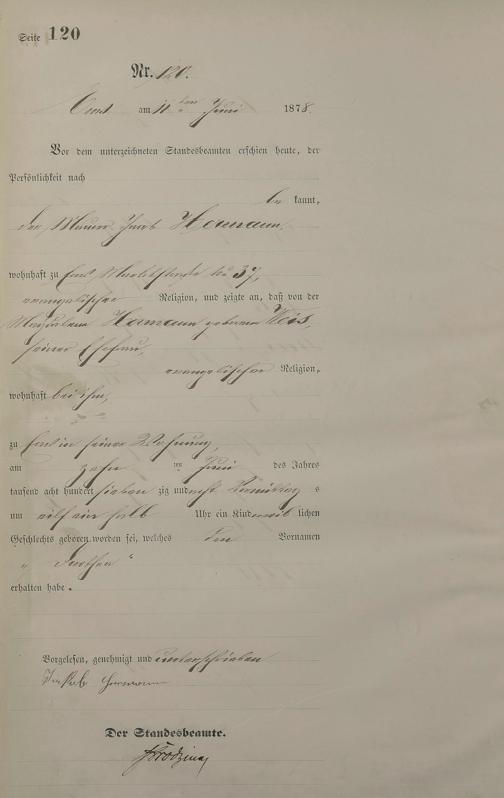 Seite 120
Nr. 120.
Ems am 11ten Juni 1878.
Vor dem unterzeichneten Standesbeamten erschien heute, der
Persönlichkeit nach
be kannt,
der Maurer Jacob Hermann,
wohnhaft zu Ems Marktstraße No 37,
evangelischer Religion, und zeigte an, daß von der
Magdalena Hermann geborene Weis,
seiner Ehefrau,
evangelischer Religion,
wohnhaft bei ihm,
zu Ems in seiner Wohnung,
am zehn ten Juni des Jahres
tausend acht hundert sieben zig und acht Vormittag s
um eilf ein halb Uhr ein Kind weib lichen
Geschlechts geboren worden sei, welches den Vornamen
„ Dorthea "
erhalten habe.
Vorgelesen, genehmigt und unterschrieben
Jakob Hermann
Der Standesbeamte.